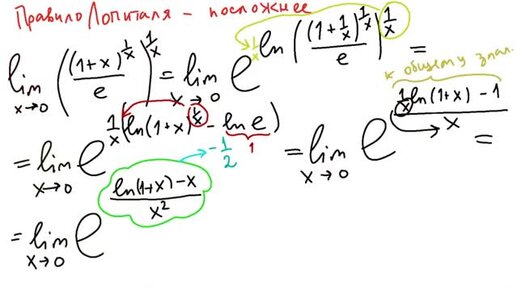 Правило Лопиталя - посложнее
lim x→0 ((1+x)^(1/x) / e)^(1/x) = lim x→0 e^(1/x ln((1+1/x)^(1/x) / e)^(1/x)) =
к общему знам.
= lim x→0 e^(1/x (ln(1+x)^(1/x) - ln e)) 1 = lim x→0 e^((1/x ln(1+x) - 1) / x) =
= lim x→0 e^((ln(1+x) - x) / x²) -1/2